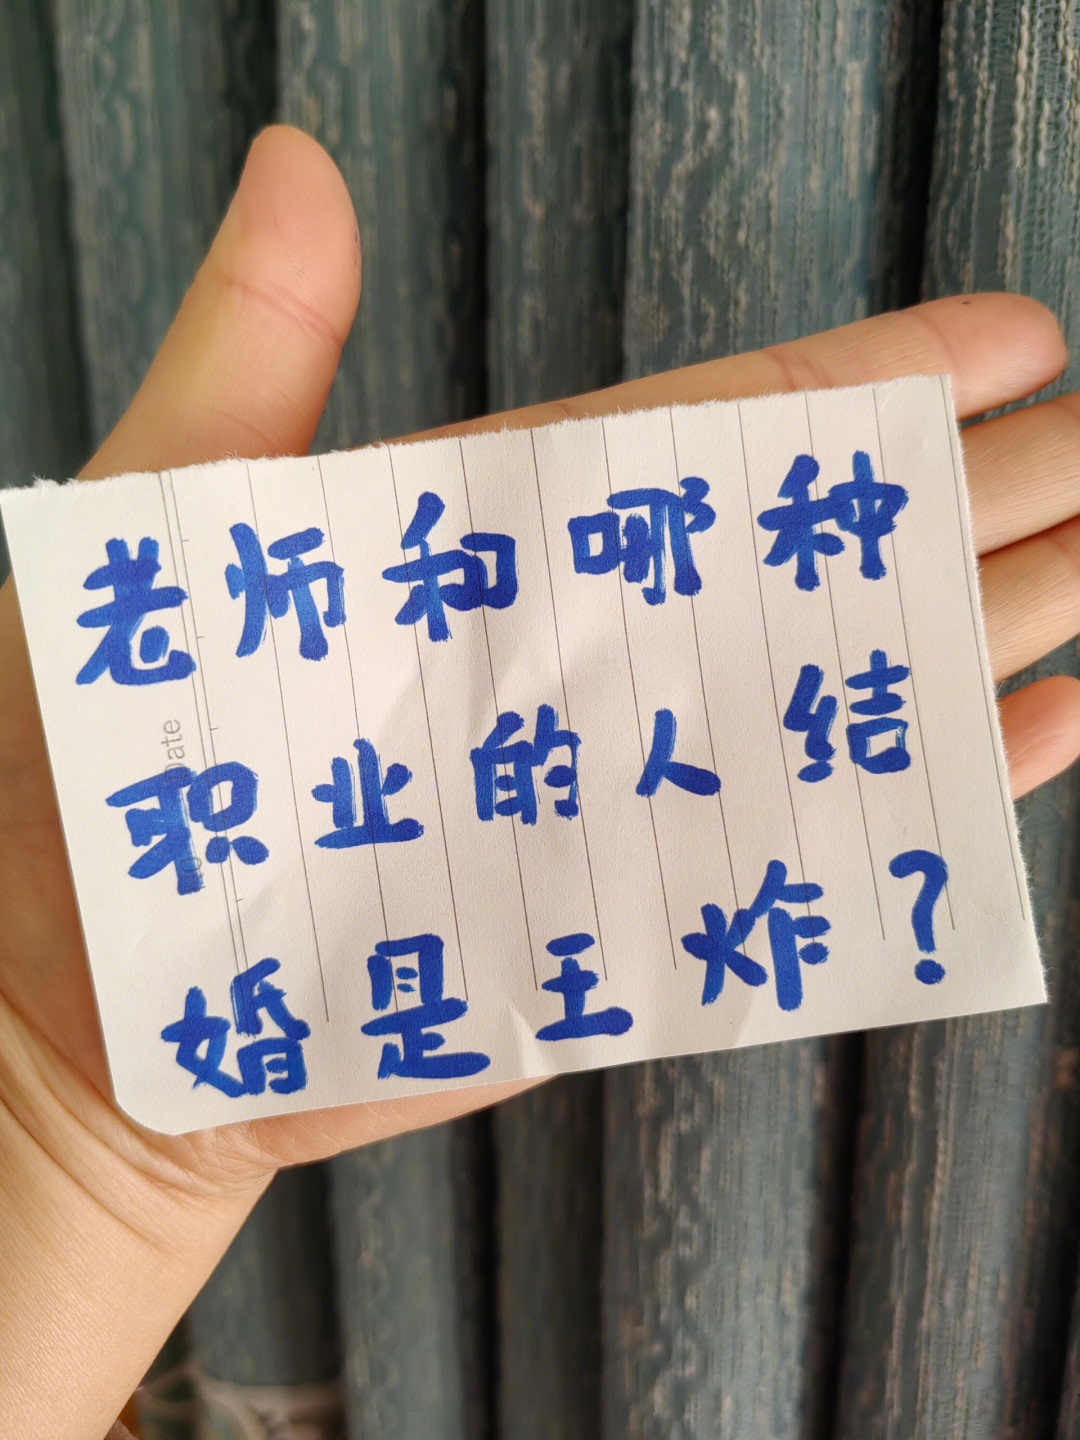 老师和哪种
职业的人结
婚是王炸?
Date